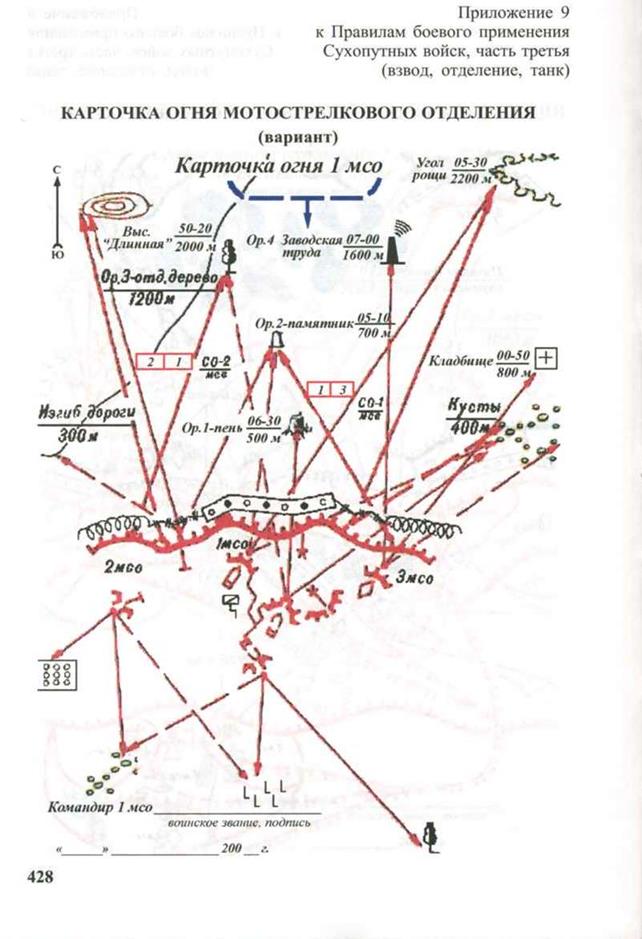 Приложение 9
к Правилам боевого применения
Сухопутных войск, часть третья
(взвод, отделение, танк)
КАРТОЧКА ОГНЯ МОТОСТРЕЛКОВОГО ОТДЕЛЕНИЯ
(вариант)
Карточка огня 1 мсо
С
Ю
Угол рощи 05-30
2200 м
Выс. "Длинная" 50-20
2000 м
Ор.4 Заводская труба 07-00
1600 м
Ор.3-отд.дерево
1200м
Ор.2-памятник 05-10
700 м
2 1
СО-2
мсв
Кладбище 00-50
800 м
+
1 3
СО-1
мсв
Изгиб дороги
300м
Ор.1-пень 06-30
500 м
Кусты
400м
2мсо
1мсо
3мсо
Командир 1 мсо
воинское звание, подпись
«______» __________________ 200 __ г.
428